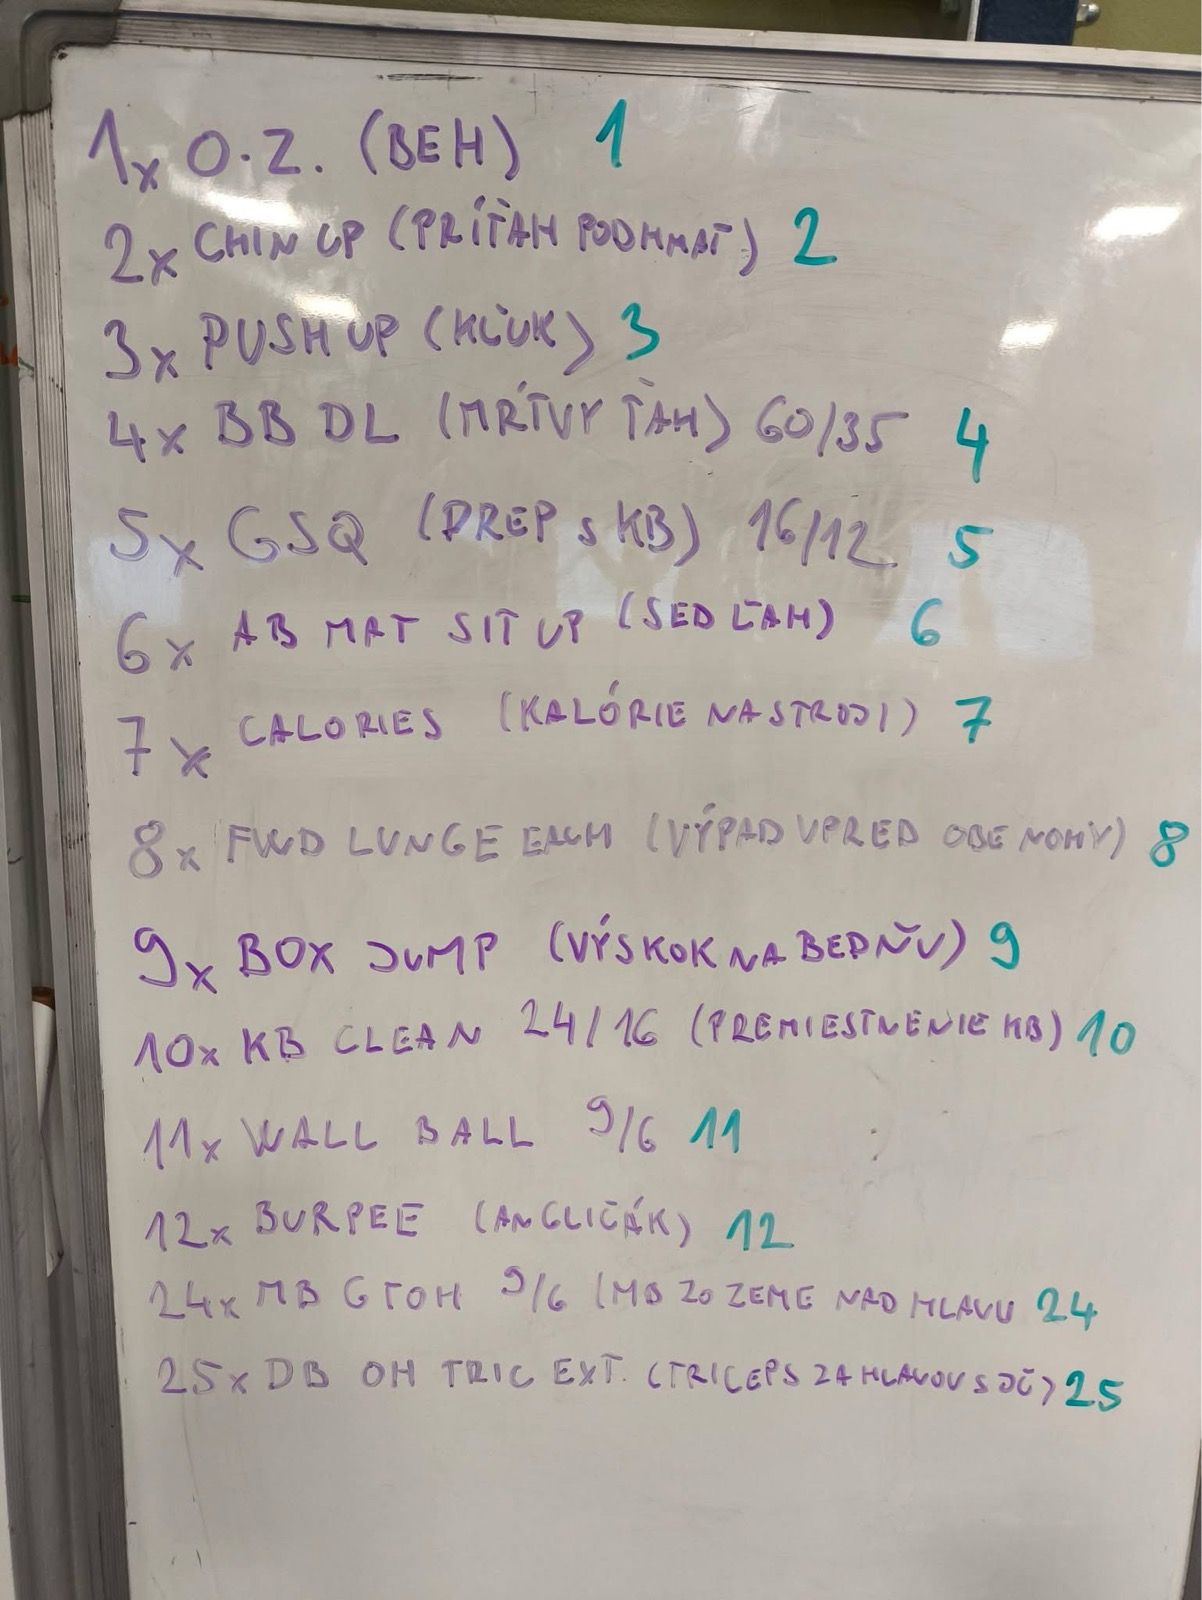 1x O.Z. (BEH) 1
2x CHIN UP (PRÍŤAH PODHMAŤ) 2
3x PUSH UP (KĽUK) 3
4x BB DL (MŔTVY ŤAH) 60/35 4
5x GSQ (DREP S KB) 16/12 5
6x AB MAT SIT UP (SED ĽAH) 6
7x CALORIES (KALÓRIE NA STROJI) 7
8x FWD LUNGE EACH (VÝPAD VPRED OBE NOHY) 8
9x BOX JUMP (VÝSKOK NA BEDŇU) 9
10x KB CLEAN 24/16 (PREMIESTNENIE KB) 10
11x WALL BALL 9/6 11
12x BURPEE (ANGLIČÁK) 12
24x MB GTOH 9/6 (MB ZO ZEME NAD HLAVU 24
25x DB OH TRIC EXT. (TRICEPS ZA HLAVOU S JČ) 25